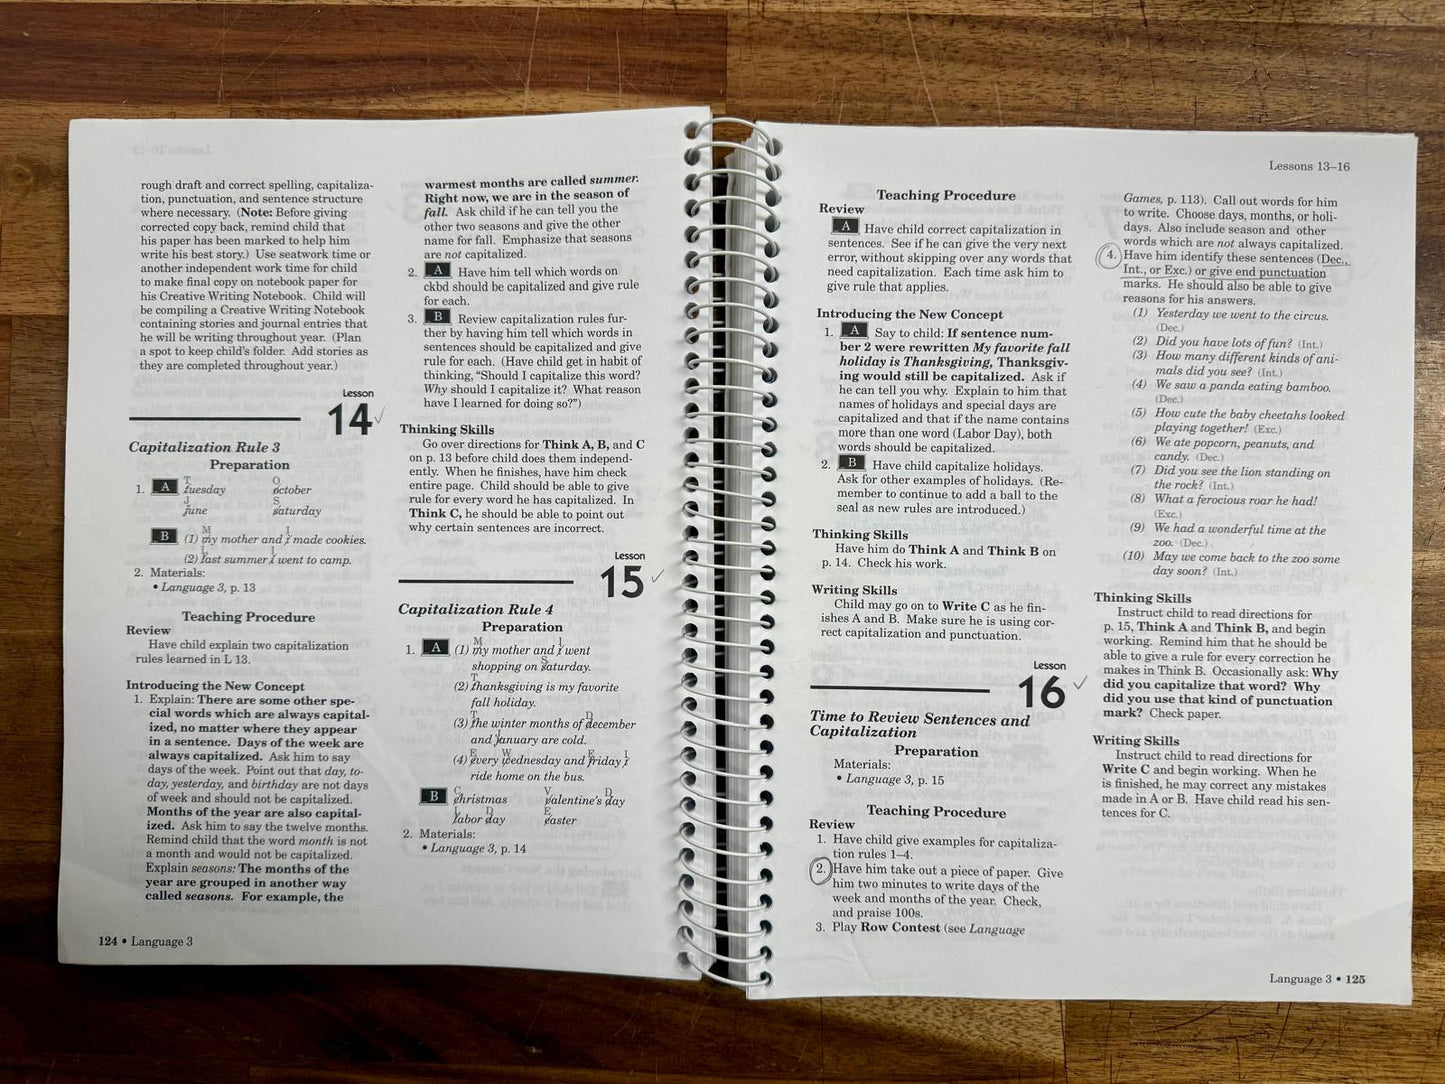 rough draft and correct spelling, capitaliza-
tion, punctuation, and sentence structure
where necessary. (Note: Before giving
corrected copy back, remind child that
his paper has been marked to help him
write his best story.) Use seatwork time or
another independent work time for child
to make final copy on notebook paper for
his Creative Writing Notebook. Child will
be compiling a Creative Writing Notebook
containing stories and journal entries that
he will be writing throughout year. (Plan
a spot to keep child's folder. Add stories as
they are completed throughout year.)
Lesson
14
Capitalization Rule 3
Preparation
T O
1. A tuesday october
J S
june saturday
M I
B (1) my mother and i made cookies.
L I
(2) last summer i went to camp.
2. Materials:
• Language 3, p. 13
Teaching Procedure
Review
Have child explain two capitalization
rules learned in L 13.
Introducing the New Concept
1. Explain: There are some other spe-
cial words which are always capital-
ized, no matter where they appear
in a sentence. Days of the week are
always capitalized. Ask him to say
days of the week. Point out that day, to-
day, yesterday, and birthday are not days
of week and should not be capitalized.
Months of the year are also capital-
ized. Ask him to say the twelve months.
Remind child that the word month is not
a month and would not be capitalized.
Explain seasons: The months of the
year are grouped in another way
called seasons. For example, the
124 • Language 3
warmest months are called summer.
Right now, we are in the season of
fall. Ask child if he can tell you the
other two seasons and give the other
name for fall. Emphasize that seasons
are not capitalized.
2. A Have him tell which words on
ckbd should be capitalized and give rule
for each.
3. B Review capitalization rules fur-
ther by having him tell which words in
sentences should be capitalized and give
rule for each. (Have child get in habit of
thinking, "Should I capitalize this word?
Why should I capitalize it? What reason
have I learned for doing so?")
Thinking Skills
Go over directions for Think A, B, and C
on p. 13 before child does them independ-
ently. When he finishes, have him check
entire page. Child should be able to give
rule for every word he has capitalized. In
Think C, he should be able to point out
why certain sentences are incorrect.
Lesson
15
Capitalization Rule 4
Preparation
M I
1. A (1) my mother and i went
S
shopping on saturday.
T
(2) thanksgiving is my favorite
fall holiday.
T D
(3) the winter months of december
J
and january are cold.
E W F I
(4) every wednesday and friday i
ride home on the bus.
C V D
B christmas valentine's day
L D E
labor day easter
2. Materials:
• Language 3, p. 14
Lessons 13–16
Teaching Procedure
Review
A Have child correct capitalization in
sentences. See if he can give the very next
error, without skipping over any words that
need capitalization. Each time ask him to
give rule that applies.
Introducing the New Concept
1. A Say to child: If sentence num-
ber 2 were rewritten My favorite fall
holiday is Thanksgiving, Thanksgiv-
ing would still be capitalized. Ask if
he can tell you why. Explain to him that
names of holidays and special days are
capitalized and that if the name contains
more than one word (Labor Day), both
words should be capitalized.
2. B Have child capitalize holidays.
Ask for other examples of holidays. (Re-
member to continue to add a ball to the
seal as new rules are introduced.)
Thinking Skills
Have him do Think A and Think B on
p. 14. Check his work.
Writing Skills
Child may go on to Write C as he fin-
ishes A and B. Make sure he is using cor-
rect capitalization and punctuation.
Lesson
16
Time to Review Sentences and
Capitalization
Preparation
Materials:
• Language 3, p. 15
Teaching Procedure
Review
1. Have child give examples for capitaliza-
tion rules 1–4.
2. Have him take out a piece of paper. Give
him two minutes to write days of the
week and months of the year. Check,
and praise 100s.
3. Play Row Contest (see Language
Games, p. 113). Call out words for him
to write. Choose days, months, or holi-
days. Also include season and other
words which are not always capitalized.
4. Have him identify these sentences (Dec.,
Int., or Exc.) or give end punctuation
marks. He should also be able to give
reasons for his answers.
(1) Yesterday we went to the circus.
(Dec.)
(2) Did you have lots of fun? (Int.)
(3) How many different kinds of ani-
mals did you see? (Int.)
(4) We saw a panda eating bamboo.
(Dec.)
(5) How cute the baby cheetahs looked
playing together! (Exc.)
(6) We ate popcorn, peanuts, and
candy. (Dec.)
(7) Did you see the lion standing on
the rock? (Int.)
(8) What a ferocious roar he had!
(Exc.)
(9) We had a wonderful time at the
zoo. (Dec.)
(10) May we come back to the zoo some
day soon? (Int.)
Thinking Skills
Instruct child to read directions for
p. 15, Think A and Think B, and begin
working. Remind him that he should be
able to give a rule for every correction he
makes in Think B. Occasionally ask: Why
did you capitalize that word? Why
did you use that kind of punctuation
mark? Check paper.
Writing Skills
Instruct child to read directions for
Write C and begin working. When he
is finished, he may correct any mistakes
made in A or B. Have child read his sen-
tences for C.
Language 3 • 125